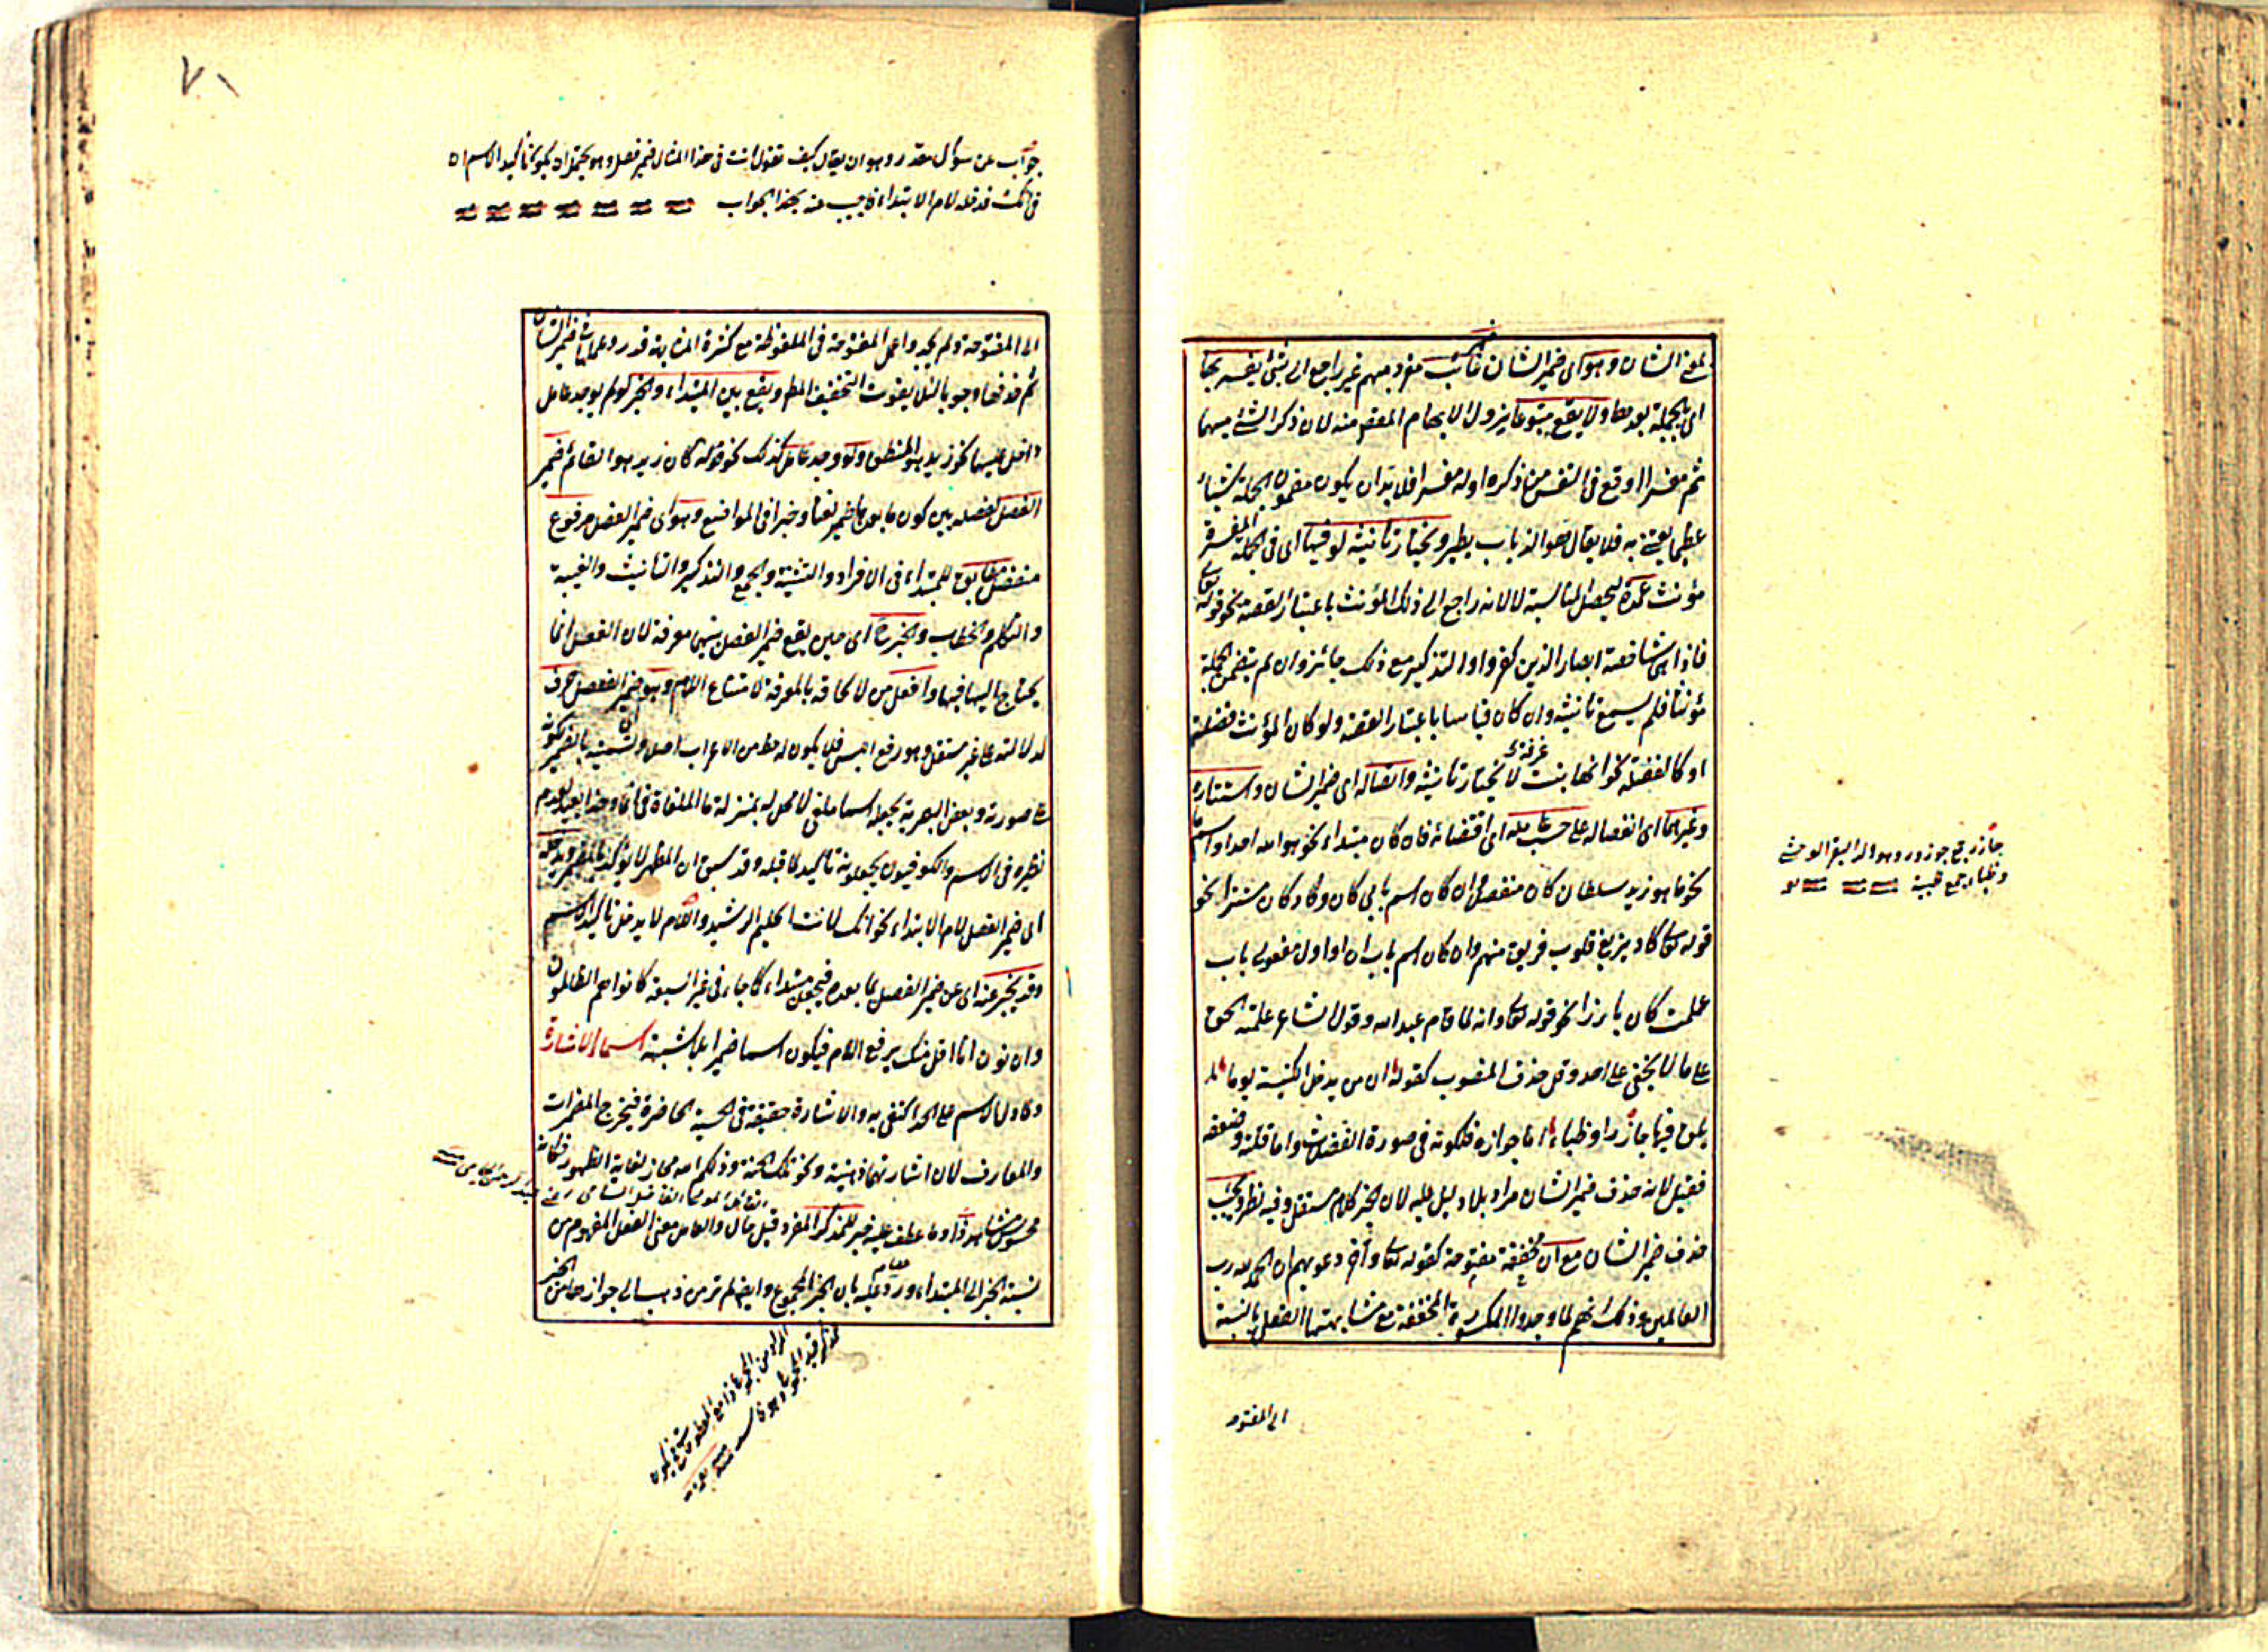 لمعنى الشان وهو اى ضمير الشان غائب مفرد مبهم غير راجع الى شئ يفسر بها
اى بجملة بعده ولا يقع متبوعا يزول الابهام المقصود منه لان ذكر الشئ مبهما
ثم مفسرا اوقع فى النفس من ذكره اوله مفسرا فلا بد ان يكون مضمون الجملة شيئا
عظيما يعتنى به فلا يقال هو الذباب يطير ويختار تانيثه لو فيها اى فى الجملة المفسرة
مؤنث عمدة ليحصل المناسبة لا لانه راجع الى ذلك المؤنث باعتبار القصة نحو قوله تعالى
فاذا هى شاخصة ابصار الذين كفروا والتذكير مع ذلك جائز وان لم يتضمن الجملة
مؤنثا فلم يسمع تانيثه وان كان قياسا باعتبار القصة ولو كان المؤنث فضلة
او كالفضلة نحو انها بنيت غرفة لا يختار تانيثه واتصاله اى ضمير الشان واستتاره
وغيرهما اى انفصاله على حسب عامله اى اقتضائه فان كان مبتداء نحو هو الله احد او اسم ما
نحو ما هو زيد سلطان كان منفصلا وان كان اسم بابى كان وكاد كان مستترا نحو
قوله تعالى كاد يزيغ قلوب فريق منهم وان كان اسم باب ان او اول مفعولى باب
علمت كان بارزا نحو قوله تعالى وانه لما قام عبد الله وقول الشاعر علمته الحق
على ما لا يخفى على احد وقل حذف المنصوب كقوله ان من يدخل الكنيسة يوما
يلق فيها جآذرا وظباء اما جوازه فلكونه فى صورة الفضلات واما قلته وضعفه
فقيل لانه حذف ضمير الشان مراد بلا دليل عليه لان الخبر كلام مستقل وفيه نظر ويجب
حذف ضمير الشان مع ان مخففة مفتوحة كقوله تعالى وآخر دعويهم ان الحمد لله رب
العالمين وذلك انهم لما وجدوا المكسورة المخففة مع مشابهتها الفعل بالنسبة
الى المفتوحه
جآذر جمع جوذر وهو ولد البقر الوحشى
وظباء جمع ظبية
٧١
جواب عن سؤال مقدر وهو ان يقال كيف تقول انت فى هذا المثال ضمير فصل وهو يحتمل ان يكون تاكيد الاسم ان
فى انك قد دخله لام الابتداء فاجيب عنه بهذا الجواب
الى المفتوحة ولم يجدوا عمل المفتوحة فى الملفوظة مع كثرة المشابهة قدروا عملها فى ضمير الشان
ثم حذفها وجوبا لئلا يفوت التخفيف المط ويقع بين المبتداء والخبر لو لم يوجد عامل
داخل عليهما نحو زيد هو المنطلق ولو وجد عامل كذلك نحو قولك كان زيد هو القائم ضمير
الفصل لفصله بين كون ما بعد الضمير نعتا وخبرا فى المواضع وهو اى ضمير الفصل مرفوع
منفصل مطابق للمبتداء فى الافراد والتثنية والجمع والتذكير والتانيث والغيبة
والتكلم والخطاب والخبر اى حين يقع ضمير الفصل بينهما معرفة لان الفصل انما
يحتاج اليها فيها وافعل من لالحاقه بالمعرفة لامتناع اللام وهو ضمير الفصل حرف
لدلالته على غير مستقل وهو رفع اللبس فلا يكون له حظ من الاعراب اصلا وتسميته بالضمير لكونه
على صورته وبعض البصرية يجعله اسما ملغى لا محل له بمنزلة ما الملغاة فى انما وهذا بعيد لعدم
نظيره فى الاسم والكوفيون يجعلونه تاكيدا لما قبله وقد سبق ان المظهر لا يؤكد بالمضمر ويدخله
اى ضمير الفصل لام الابتداء نحو انك لانت الحليم الرشيد واللام لا يدخل تاكيد الاسم
وقد يخبر عنه اى عن ضمير الفصل بما بعده فيجعل مبتداء كما جاء فى غير السبعة كانوا هم الظالمون
وان ترن انا اقل منك برفع اللام فيكون اسما ضميرا بلا شبهة اسماء الاشارة
ودل الاسم على الحد اكتفى به والاشارة حقيقة فى الحسية الحاضرة فيخرج المضمرات
والمعارف لان اشارتهما ذهنية ونحو تلك الجنة وذلكم الله مجاز لغاية الظهور فكانه
محسوس مشاهد ذا وما عطف عليه خبر للمذكر المفرد قيل حال والعامل معنى الفعل المفهوم من
نسبة الخبر الى المبتداء ورد عليه بان الخبر المجموع وايضا لم نر من ذهب الى جواز حال من الخبر